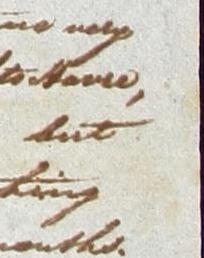 very
to Havre,
but
thing
months.